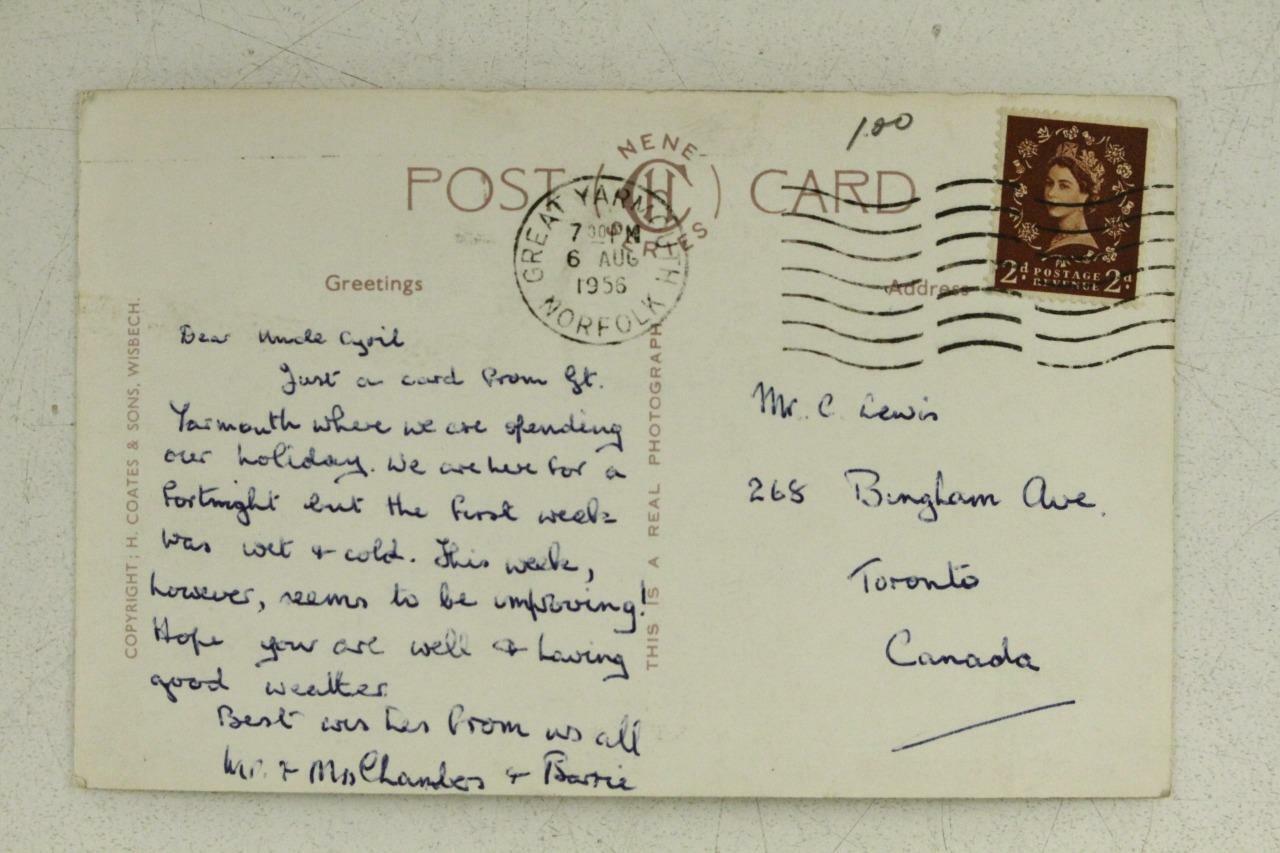 1.00
NENE
POST (HC) CARD
SERIES
GREAT YARMOUTH
7 30 PM
6 AUG
1956
NORFOLK
2d POSTAGE 2d
REVENUE
Greetings
Address
COPYRIGHT; H. COATES & SONS, WISBECH.
THIS IS A REAL PHOTOGRAPH
Dear Uncle Cyril
Just a card from Gt.
Yarmouth where we are spending
our holiday. We are here for a
fortnight but the first week
was wet & cold. This week,
however, seems to be improving!
Hope you are well & having
good weather.
Best wishes from us all
Mr. & Mrs Chambers & Barrie
Mr. C. Lewis
268 Bingham Ave.
Toronto
Canada